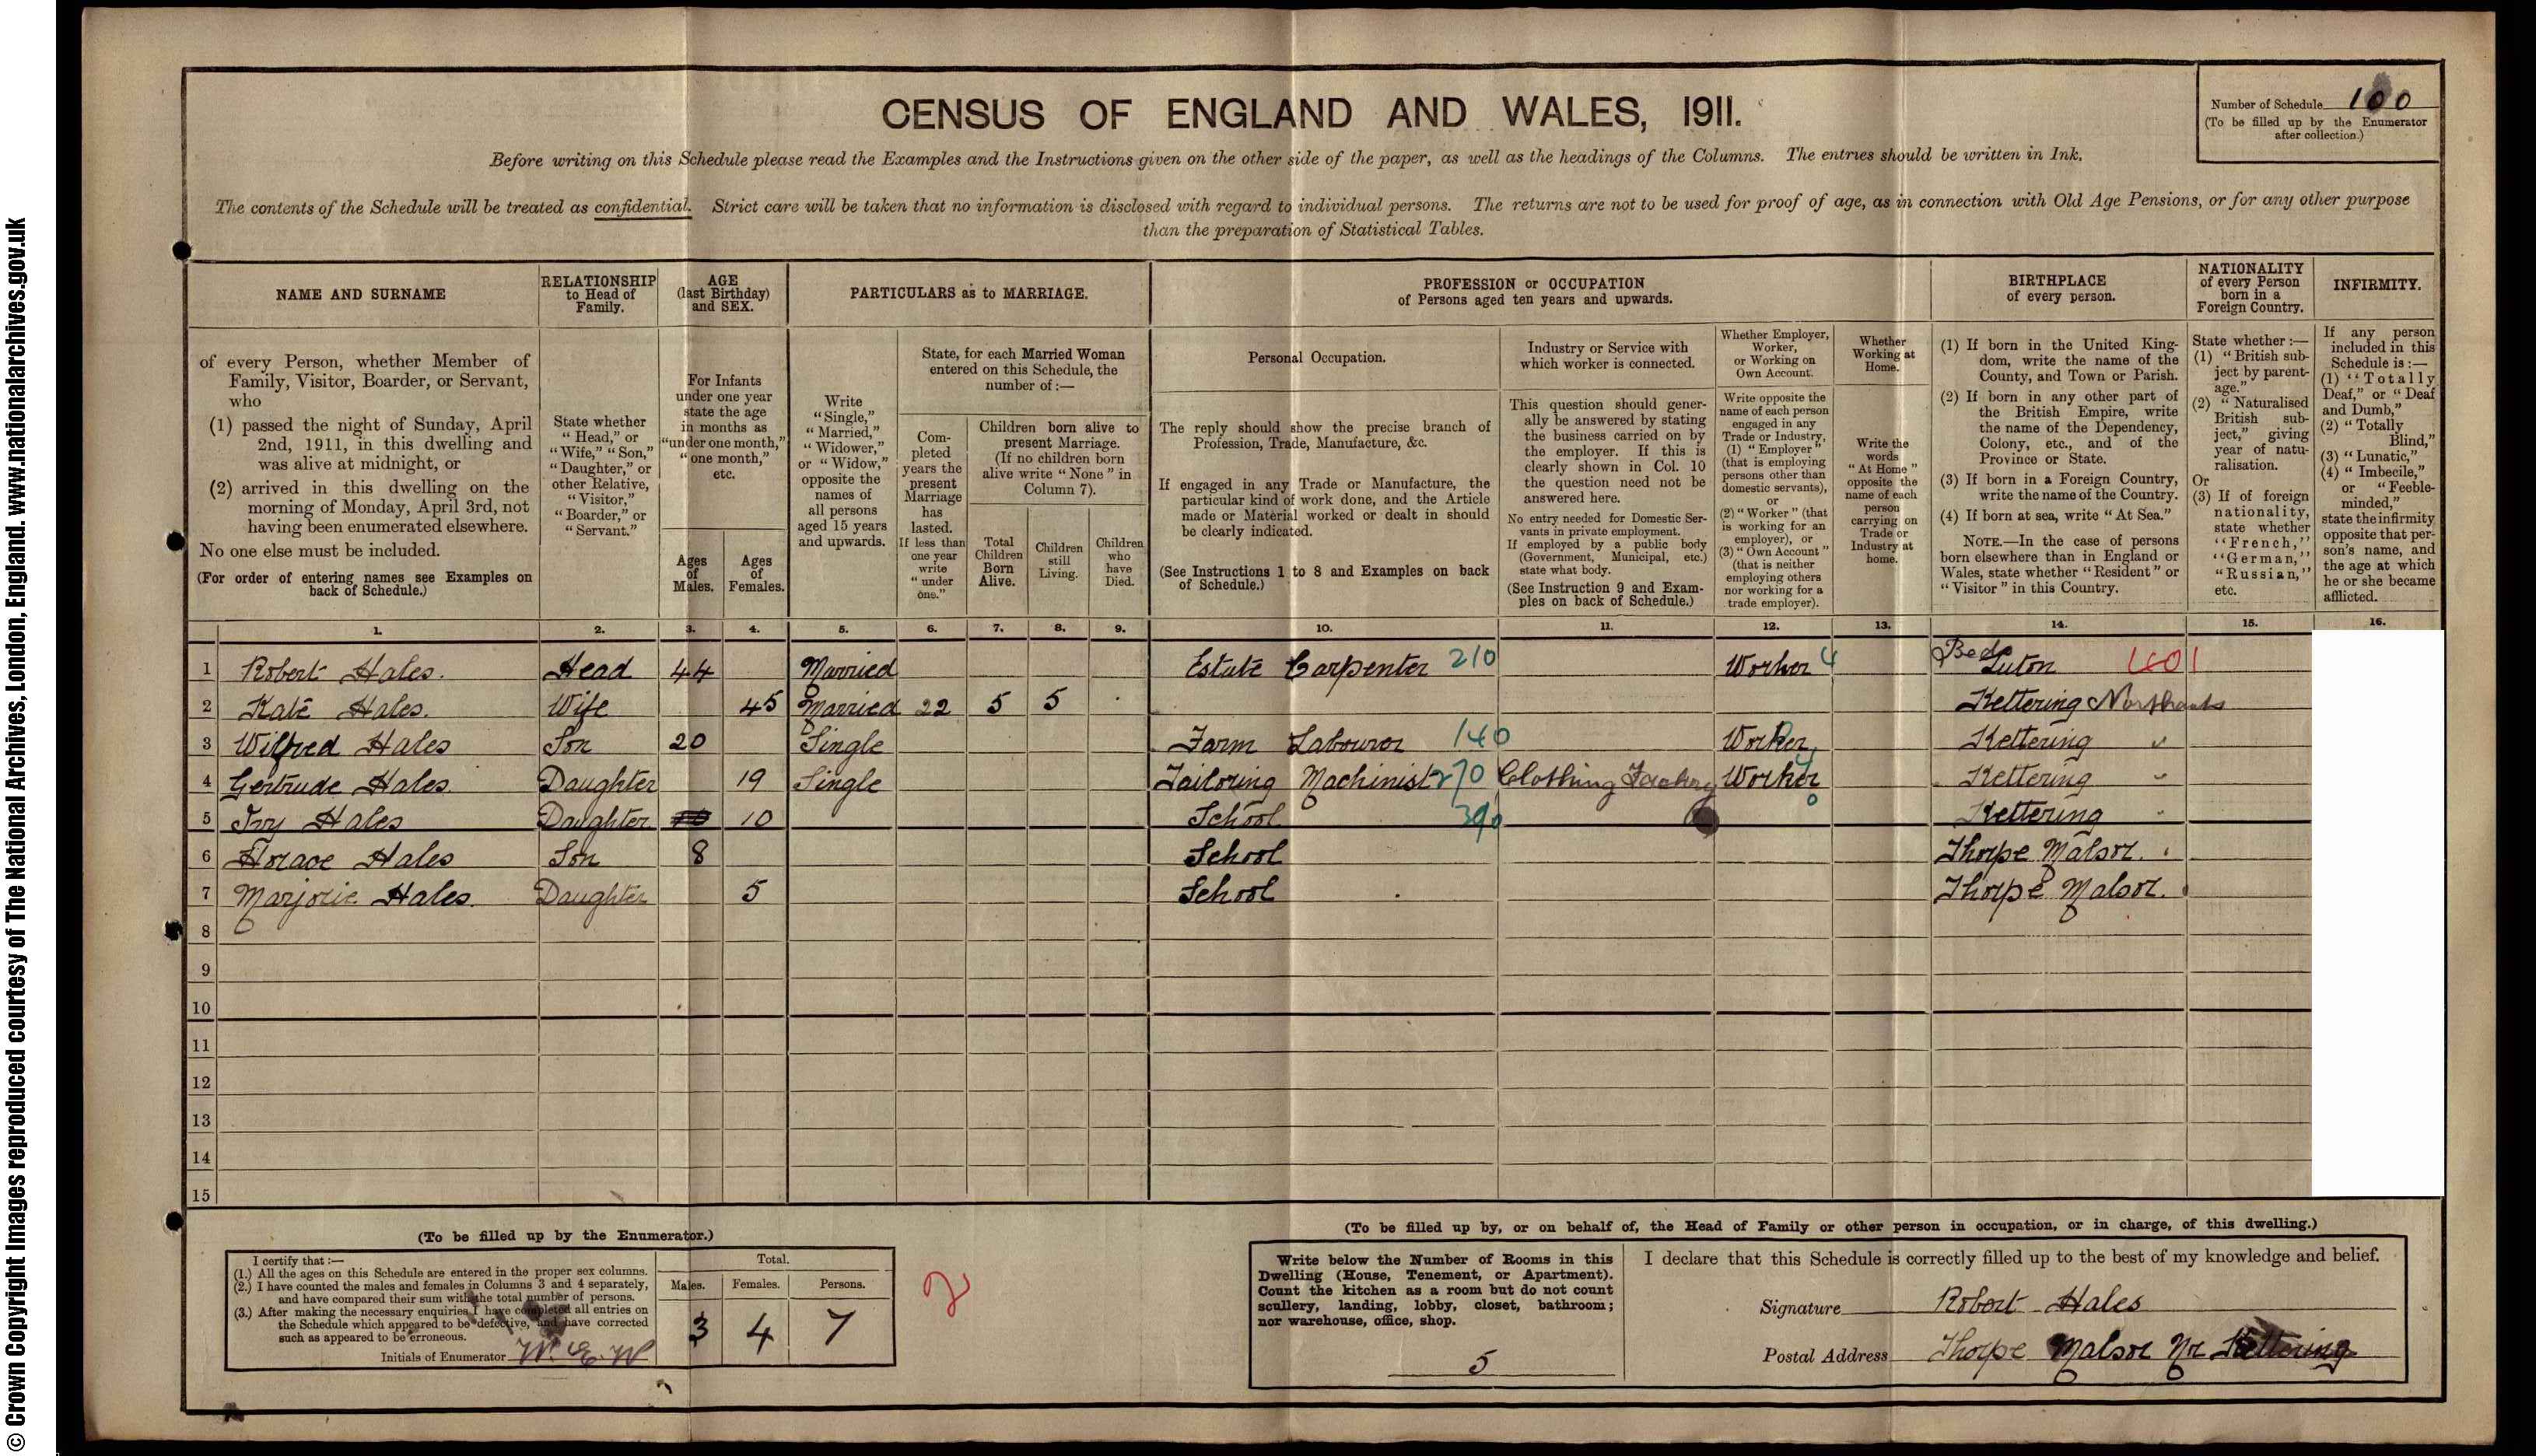 © Crown Copyright Images reproduced courtesy of The National Archives, London, England. www.nationalarchives.gov.uk
CENSUS OF ENGLAND AND WALES, 1911.
Number of Schedule 100
(To be filled up by the Enumerator
after collection.)
Before writing on this Schedule please read the Examples and the Instructions given on the other side of the paper, as well as the headings of the Columns. The entries should be written in Ink.
The contents of the Schedule will be treated as confidential. Strict care will be taken that no information is disclosed with regard to individual persons. The returns are not to be used for proof of age, as in connection with Old Age Pensions, or for any other purpose
than the preparation of Statistical Tables.
NAME AND SURNAME
of every Person, whether Member of
Family, Visitor, Boarder, or Servant,
who
(1) passed the night of Sunday, April
2nd, 1911, in this dwelling and
was alive at midnight, or
(2) arrived in this dwelling on the
morning of Monday, April 3rd, not
having been enumerated elsewhere.
No one else must be included.
(For order of entering names see Examples on
back of Schedule.)
RELATIONSHIP
to Head of
Family.
State whether
"Head," or
"Wife," "Son,"
"Daughter," or
other Relative,
"Visitor,"
"Boarder," or
"Servant."
AGE
(last Birthday)
and SEX.
For Infants
under one year
state the age
in months as
"under one month,"
"one month,"
etc.
Ages
of
Males.
Ages
of
Females.
PARTICULARS as to MARRIAGE.
Write
"Single,"
"Married,"
"Widower,"
or "Widow,"
opposite the
names of
all persons
aged 15 years
and upwards.
State, for each Married Woman
entered on this Schedule, the
number of:—
Com-
pleted
years the
present
Marriage
has
lasted.
If less than
one year
write
"under
one."
Children born alive to
present Marriage.
(If no children born
alive write "None" in
Column 7).
Total
Children
Born
Alive.
Children
still
Living.
Children
who
have
Died.
PROFESSION or OCCUPATION
of Persons aged ten years and upwards.
Personal Occupation.
The reply should show the precise branch of
Profession, Trade, Manufacture, &c.
If engaged in any Trade or Manufacture, the
particular kind of work done, and the Article
made or Material worked or dealt in should
be clearly indicated.
(See Instructions 1 to 8 and Examples on back
of Schedule.)
Industry or Service with
which worker is connected.
This question should gener-
ally be answered by stating
the business carried on by
the employer. If this is
clearly shown in Col. 10
the question need not be
answered here.
No entry needed for Domestic Ser-
vants in private employment.
If employed by a public body
(Government, Municipal, etc.)
state what body.
(See Instruction 9 and Exam-
ples on back of Schedule.)
Whether Employer,
Worker,
or Working on
Own Account.
Write opposite the
name of each person
engaged in any
Trade or Industry,
(1) "Employer"
(that is employing
persons other than
domestic servants),
or
(2) "Worker" (that
is working for an
employer), or
(3) "Own Account"
(that is neither
employing others
nor working for a
trade employer).
Whether
Working at
Home.
Write the
words
"At Home"
opposite the
name of each
person
carrying on
Trade or
Industry at
home.
BIRTHPLACE
of every person.
(1) If born in the United King-
dom, write the name of the
County, and Town or Parish.
(2) If born in any other part of
the British Empire, write
the name of the Dependency,
Colony, etc., and of the
Province or State.
(3) If born in a Foreign Country,
write the name of the Country.
(4) If born at sea, write "At Sea."
NOTE.—In the case of persons
born elsewhere than in England or
Wales, state whether "Resident" or
"Visitor" in this Country.
NATIONALITY
of every Person
born in a
Foreign Country.
State whether:—
(1) "British sub-
ject by parent-
age."
(2) "Naturalised
British sub-
ject," giving
year of natu-
ralisation.
Or
(3) If of foreign
nationality,
state whether
"French,"
"German,"
"Russian,"
etc.
INFIRMITY.
If any person
included in this
Schedule is:—
(1) "Totally
Deaf," or "Deaf
and Dumb,"
(2) "Totally
Blind,"
(3) "Lunatic,"
(4) "Imbecile,"
or "Feeble-
minded,"
state the infirmity
opposite that per-
son's name, and
the age at which
he or she became
afflicted.
1. 2. 3. 4. 5. 6. 7. 8. 9. 10. 11. 12. 13. 14. 15. 16.
1 Robert Hales. Head 44 Married Estate Carpenter 210 Worker 4 Beds Luton 1601
2 Kate Hales. Wife 45 Married 22 5 5 Kettering Northants
3 Wilfred Hales Son 20 Single Farm Labourer 140 Worker Kettering "
4 Gertrude Hales. Daughter 19 Single Tailoring Machinist 270 Clothing Factory Worker Kettering "
5 Ivy Hales Daughter 10 School 390 0 Kettering
6 Horace Hales Son 8 School Thorpe Malsor.
7 Marjorie Hales. Daughter 5 School Thorpe Malsor.
8
9
10
11
12
13
14
15
(To be filled up by the Enumerator.)
I certify that:—
(1.) All the ages on this Schedule are entered in the proper sex columns.
(2.) I have counted the males and females in Columns 3 and 4 separately,
and have compared their sum with the total number of persons.
(3.) After making the necessary enquiries I have completed all entries on
the Schedule which appeared to be defective, and have corrected
such as appeared to be erroneous.
Initials of Enumerator W.E.W
Total.
Males. Females. Persons.
3 4 7
2
(To be filled up by, or on behalf of, the Head of Family or other person in occupation, or in charge, of this dwelling.)
Write below the Number of Rooms in this
Dwelling (House, Tenement, or Apartment).
Count the kitchen as a room but do not count
scullery, landing, lobby, closet, bathroom;
nor warehouse, office, shop.
5
I declare that this Schedule is correctly filled up to the best of my knowledge and belief.
Signature Robert Hales
Postal Address Thorpe Malsor Nr Kettering